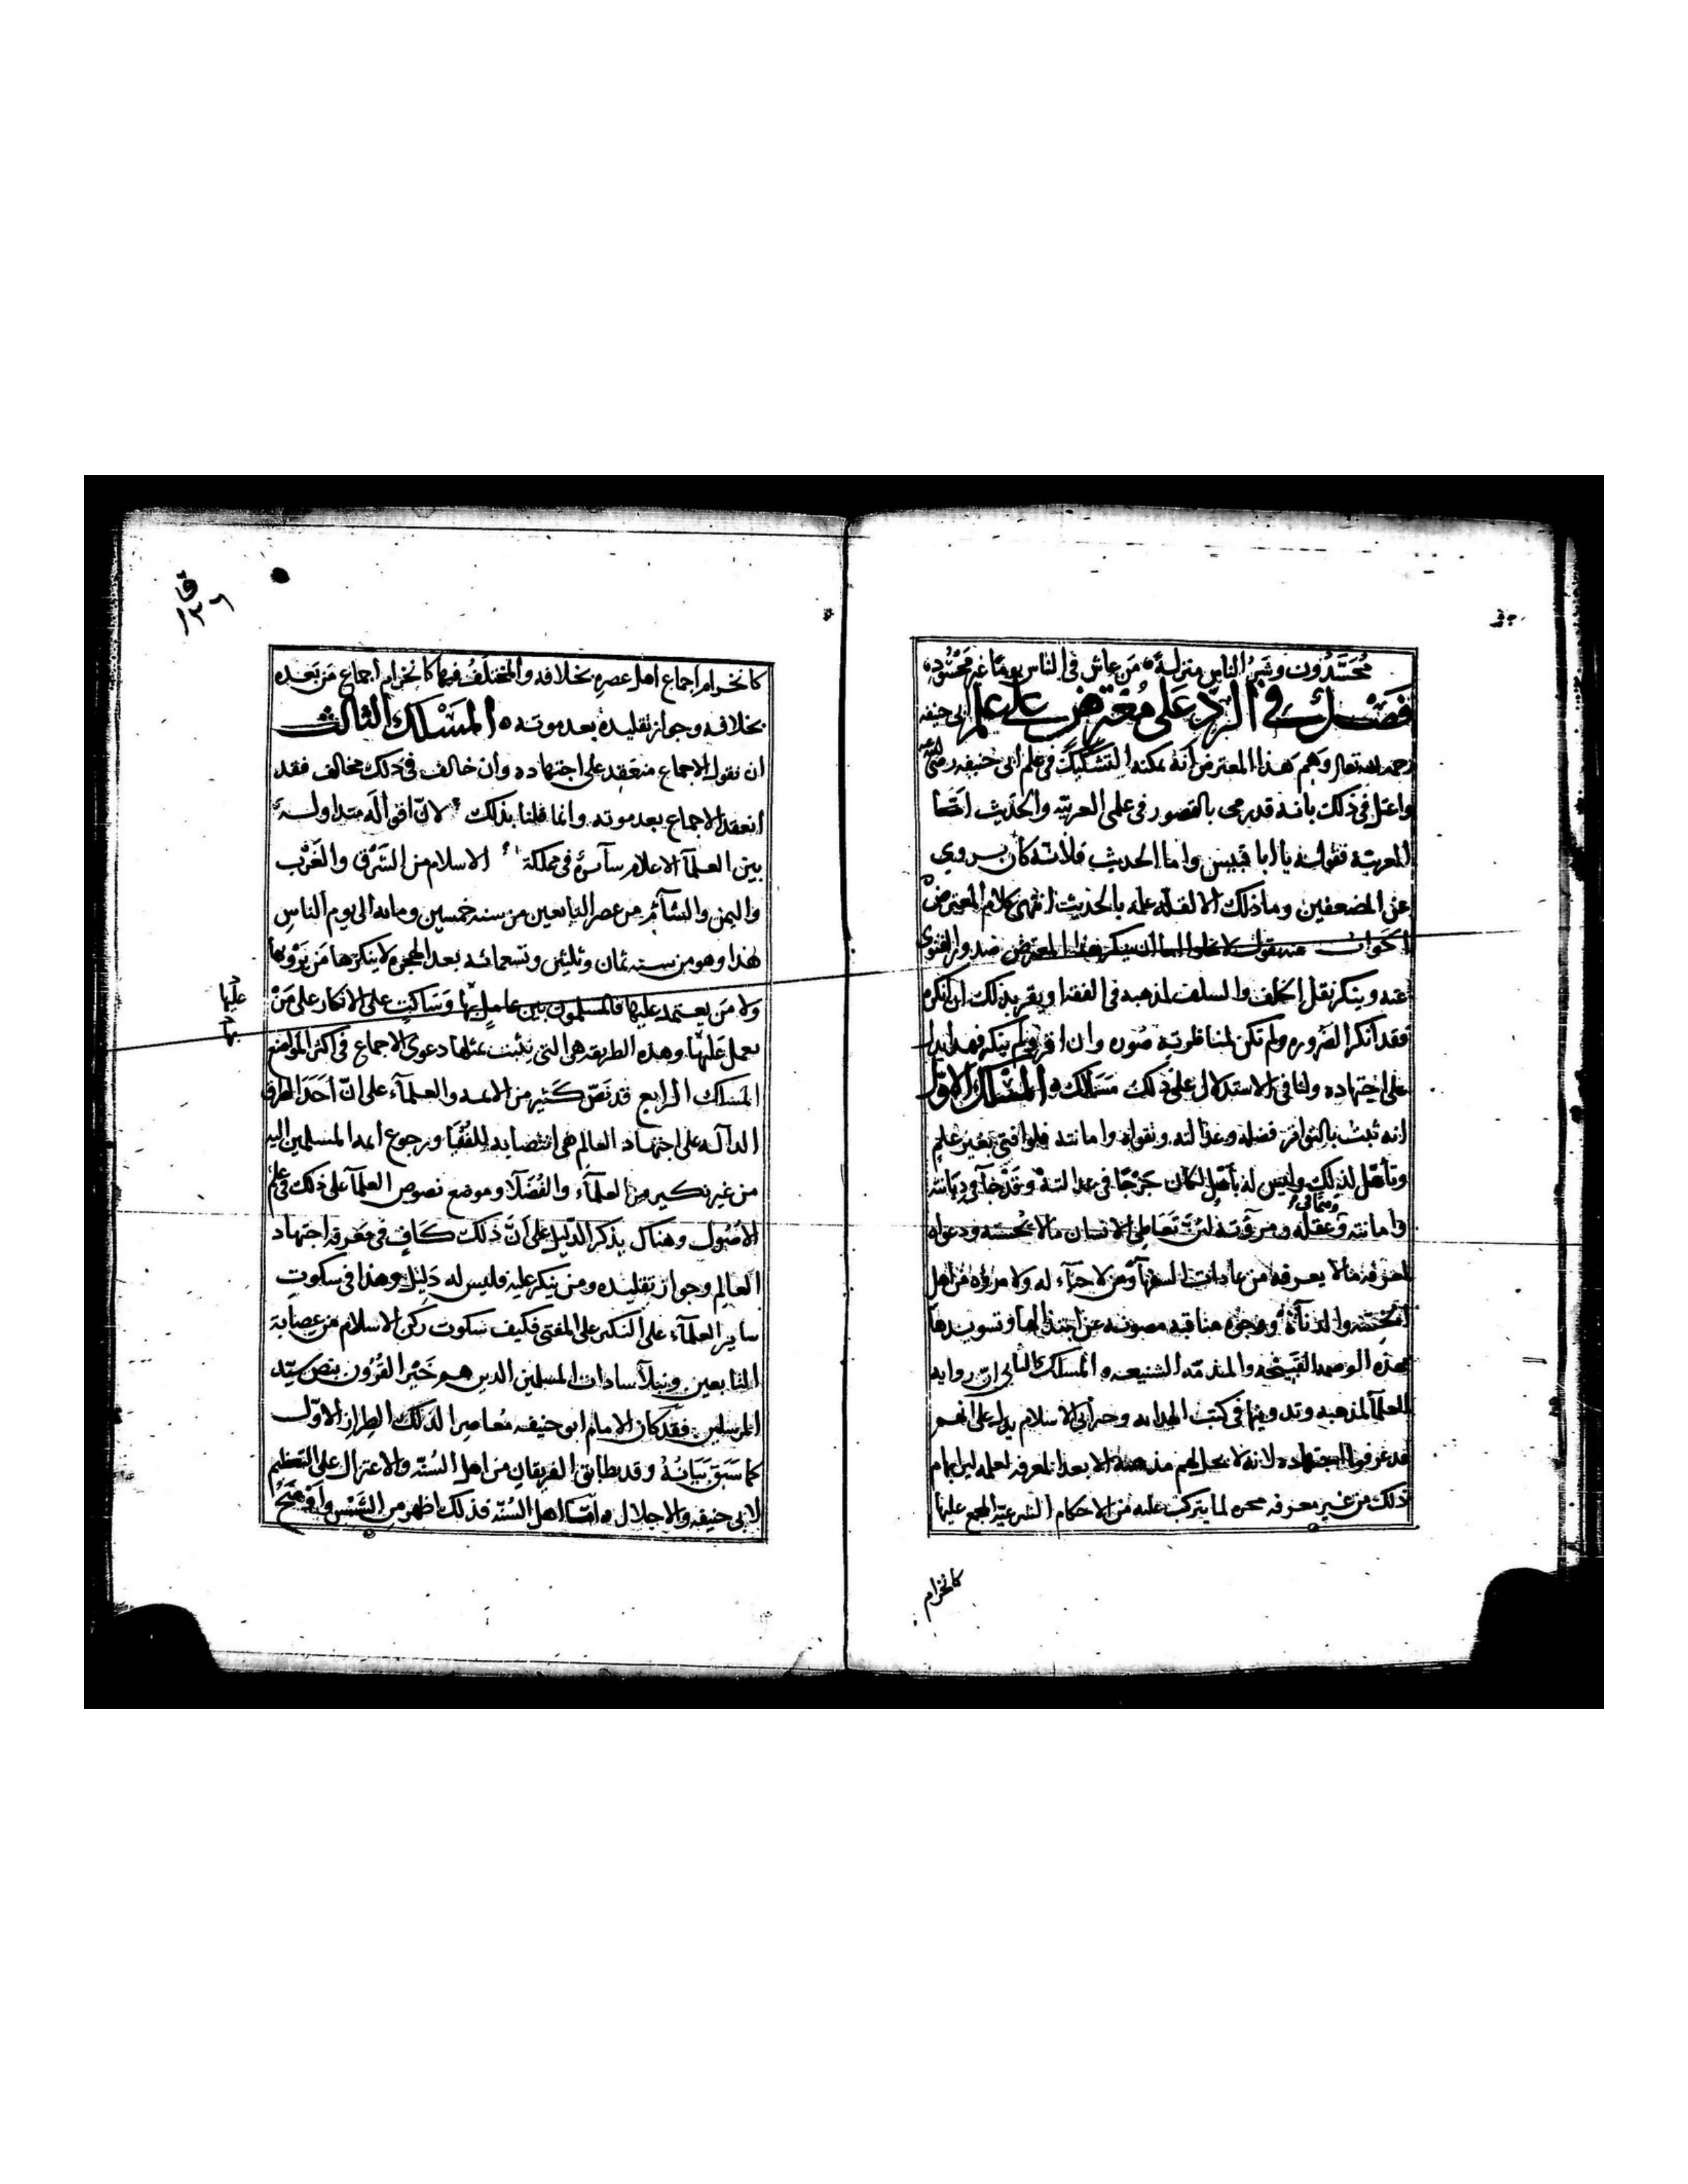 محسّدون وشرّ الناس منزلة من عاش في الناس يوما غير محسود
فصل في الردّ على معترض على علم ابي حنيفه
رحمه الله تعالى وهم هذا المعترض انه يمكنه التشكيك في علم ابي حنيفه رضي الله عنه
واعتل في ذلك بانه قد رمي بالقصور في علمي العربيه والحديث امّا
العربية فقوله يا ابا قبيس واما الحديث فلانه كان يروي
عن المضعفين وما ذلك الا لقلة علمه بالحديث انتهى كلام المعترض
الجواب منه نقول لا يخلو اما ان ينكر هذا المعترض صدور الفتوى
عنه وينكر نقل الخلف والسلف لمذهبه في الفقه او يقر بذلك ان انكره
فقد انكر الضروره ولم تكن لمناظرته صورة وان اقر ولم ينكر فهو يدل
على اجتهاده ولنا في الاستدلال على ذلك مسالك المسلك الاول
انه ثبت بالتواتر فضله وعدالته وتقواه وامانته فلو افتى بغير علم
وتأهّل لذلك وليس له بأهل لكان جرحًا في عدالته وقدحا في ديانته
وامانته وعقله ومروّته لئن تعاطي الانسان ما لا يحسنه ودعواه
لمعرفه ما لا يعرفه من عادات السفهآ ومن لا حيآء له ولا مروّه من اهل
الخسّة والدنآة ووجوه مناقبه مصونه عن ابتذالها وتسويدها
بهذه الوصمه القبيحه والمذمّه الشنيعه المسلك الثاني انّ روايه
العلمآ لمذهبه وتدوينها في كتب الهدايه وخزاين الاسلام يدل على انهم
قد عرفوا اجتهاده لانه لا يحل لهم مذهبه الا بعد المعرفه لعلمه لان ايهام
ذلك من غير معرفه محرم لما يتركب عليه من الاحكام الشرعيّه المجمع عليها
كانخرام
كانخرام اجماع اهل عصره بخلافه والمختلف فيها كانخرام اجماع من بعده
بخلافه وجواز تقليده بعد موته المسلك الثالث
ان نقول الاجماع منعقد على اجتهاده وان خالف في ذلك مخالف فقد
انعقد الاجماع بعد موته وانما قلنا بذلك لانّ اقواله متداولة
بين العلمآ الاعلام سآئرة في مملكة الاسلام من الشرق والغرب
واليمن والشآم من عصر التابعين من سنه خمسين ومايه الى يوم الناس
هذا وهو من سنه ثمان وثلثين وتسعمائه بعد الهجره لا ينكرها من يرويها
ولا من يعتمد عليها فالمسلمون بين عامل بها وساكت على الانكار على من
يعمل عليها وهذه الطريقه هي التي يثبت بمثلها دعوى الاجماع في اكثر المواضع
المسلك الرابع قد نصّ كثير من الائمه والعلمآء على انّ احد الطرق
الدآله على اجتهاد العالم هي انتصابه للفتيا ورجوع ائمه المسلمين اليه
من غير نكير من العلمآء والفضلآ وموضع نصوص العلمآ على ذلك في علم
الاصول وهناك يذكر الدّليل على انّ ذلك كاف في معرفه اجتهاد
العالم وجواز تقليده ومن ينكر عليه فليس له دليل وهذا في سكوت
ساير العلمآء على النكير على المفتي فكيف سكوت ركن الاسلام من عصابة
التابعين ونبلآ سادات المسلمين الذين هم خير القرون بنص سيّد
المرسلين فقد كان الامام ابو حنيفه معاصرا لذلك الطراز الاوّل
كما سبق بيانه وقد يطابق الفريقان من اهل السنّه والاعتزال على التعظيم
لابي حنيفه والاجلال امّا اهل السّنّه فذلك اظهر من الشّمس واوضح
عليها
بها
ومبانى
قا
١٣٦